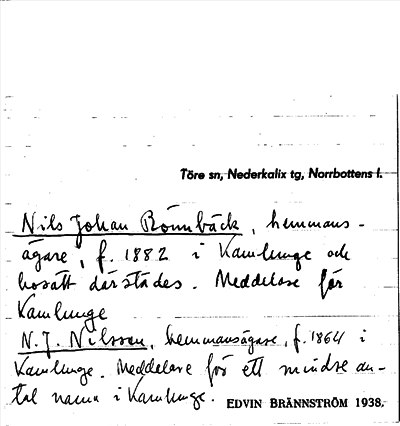 Töre sn, Nederkalix tg, Norrbottens l.
Nils Johan Rönnbäck, hemmans-
ägare, f. 1882 i Kamlunge och
bosatt därstädes. Meddelare för
Kamlunge
N. J. Nilsson, hemmansägare, f. 1864 i
Kamlunge. Meddelare för ett mindre an-
tal namn i Kamlunge. EDVIN BRÄNNSTRÖM 1938.